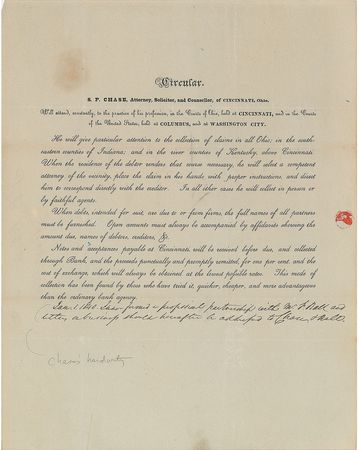 Circular.
S. P. CHASE, Attorney, Solicitor, and Counsellor, of CINCINNATI, Ohio,
Will attend, constantly, to the practice of his profession, in the Courts of Ohio, held at CINCINNATI, and in the Courts
of the United States, held at COLUMBUS, and at WASHINGTON CITY.
He will give particular attention to the collection of claims in all Ohio; in the south-
eastern counties of Indiana; and in the river counties of Kentucky, above Cincinnati.
When the residence of the debtor renders that course necessary, he will select a competent
attorney of the vicinity, place the claim in his hands with proper instructions, and direct
him to correspond directly with the creditor. In all other cases he will collect in person or
by faithful agents.
When debts, intended for suit, are due to or from firms, the full names of all partners
must be furnished. Open accounts must always be accompanied by affidavits showing the
amount due, names of debtors, creditors, &c.
Notes and acceptances payable at Cincinnati, will be received before due, and collected
through Bank, and the proceeds punctually and promptly remitted, for one per cent. and the
cost of exchange, which will always be obtained at the lowest possible rates. This mode of
collection has been found by those who have tried it, quicker, cheaper, and more advantageous
than the ordinary bank agency.
Jan. 1. 1840. I have formed a professional partnership with Mr. F. Ball and
letters on business should hereafter be addressed to Chase & Ball.
Chase's handwriting